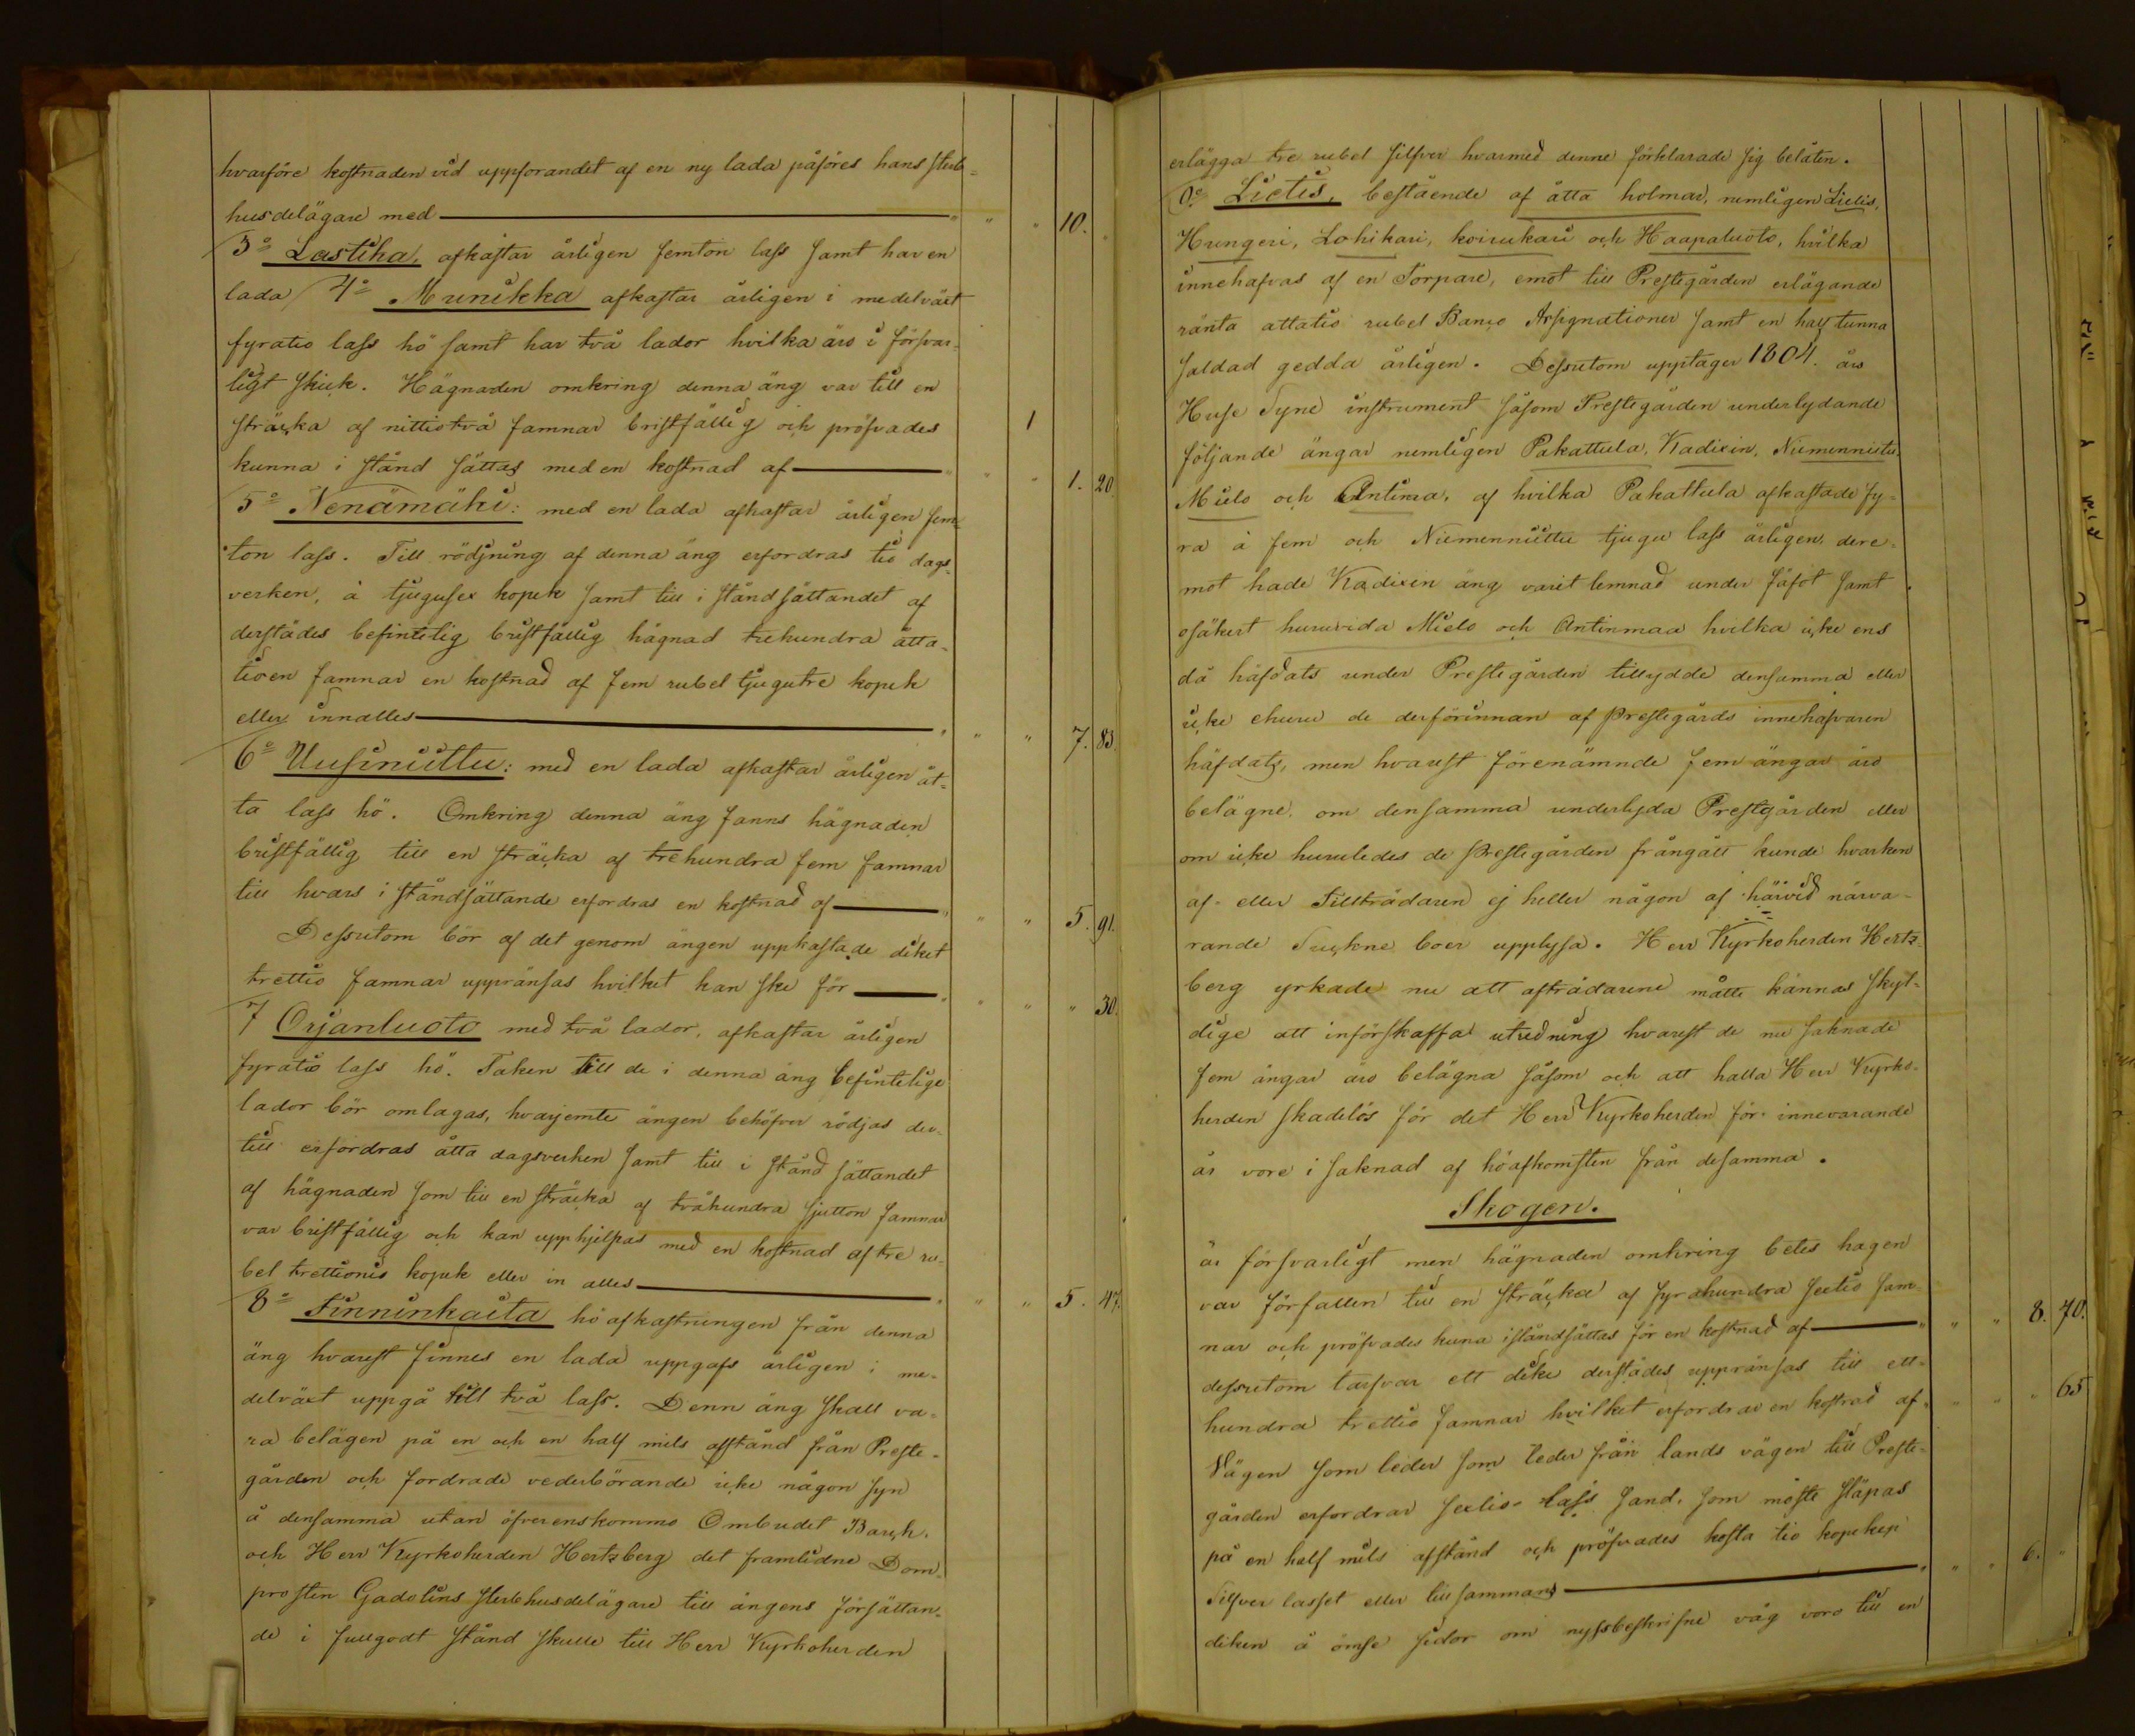 hvarföre kostnaden vid uppförandet af en ny lada påföres hans sterb=
husdelägare med — " " " 10.
3º Lastika, afkastar årligen femton lass samt har en
lada 4º Munikka afkastar årligen i medelväxt
fyratio lass hö samt har två lador hvilka äro i försvar-
ligt skick. Hägnaden omkring denna äng var till en
sträcka af nittiotvå famnar bristfällig och pröfvades
kunna i stånd sättas med en kostnad af — " " " 1. 20.
5º Nenämäki: med en lada afkastar årligen fem-
ton lass. Till rödjning af denna äng erfordras tio dags-
verken, à tjugusex kopek samt till i ståndsättandet af
derstädes befintelig bristfällig hägnad trehundra åtta-
tioen famnar en kostnad af fem rubel tjugutre kopek
eller innalles — " " " 7. 83.
6º Uusiniittu: med en lada afkastar årligen åt-
ta lass hö. Omkring denna äng fanns hägnaden
bristfällig till en sträcka af trehundra fem famnar
till hvars i ståndsättande erfordras en kostnad af — " " " 5. 91.
Dessutom bör af det genom ängen uppkastade diket
trettio famnar upprensas hvilket kan ske för — " " " " 30.
7 Orjanluoto med två lador, afkastar årligen
fyratio lass hö. Taken till de i denna äng befintelige
lador bör omlagas, hvarjemte ängen behöfver rödjas der-
till erfordras åtta dagsverken samt till i stånd sättandet
af hägnaden som till en sträcka af tvåhundra sjutton famnar
var bristfällig och kan upphjelpas med en kostnad af tre ru-
bel trettionio kopek eller in alles — " " " 5. 47.
8º Finninkaita hö afkastningen från denna
äng hvarest finnes en lada uppgafs årligen i me-
delväxt uppgå till två lass. Denn äng skall va-
ra belägen på en och en half mils afstånd från Preste-
gården och fordrade vederbörande icke någon syn
å densamma utan öfverenskommo Ombudet Barck.
och Herr Kyrkoherden Hertzberg det framlidne Dom-
prosten Gadolins sterbhusdelägare till ängens försättan-
de i fullgodt stånd skulle till Herr Kyrkoherden
erlägga tre rubel silfver hvarmed denne förklarade sig belåten.
9º Lietis, bestående af åtta holmar, nemligen Lietis,
Hungeri, Lohikari, koirukari och Haapaluoto, hvilka
innehafvas af en Torpare, emot till Prestegården erlägande
ränta attatio rubel Banco Assignationer samt en half tunna
saldad gedda årligen. Dessutom upptager 1804. års
Huse Syne instrument såsom Prestegården underlydande
följande ängar nemligen Pakattula, Kadixin, Niemenniittu
Mielo och Antinma, af hvilka Pakattula afkastade fy-
ra à fem och Niemenniittu tjugu lass årligen, dere-
mot hade Kadixin äng varit lemnad under fäfot samt
osäkert huruvida Mielo och Antinmaa hvilka icke ens
då häfdats under Prestegården tillydde densamma eller
icke ehuru de derförinnan af Prestegårds innehafvaren
häfdats, men hvarest förenämnde fem ängar äro
belägne, om densamma underlyda Prestgården eller
om icke huruledes de Prestegården frångått kunde hvarken
af- eller Tillträdaren ej heller någon af härvid närva-
rande Sockne boer upplysa. Herr Kyrkoherden Hertz-
berg yrkade nu att afträdarene måtte kännas skyl-
dige att införskaffa utredning hvarest de nu saknade
fem ängar äro belägna såsom och att halla Herr Kyrko-
herden skadelös för det Herr Kyrkoherden för innevarande
år vore i saknad af höafkomsten från desamma.
Skogen.
är försvarligt men hägnaden omkring betes hagen
var förfallen till en sträcka af fyrahundra sextio fam-
nar och pröfvades kuna iståndsättas för en kostnad af — " " " 8. 70.
dessutom tarfvar ett dike derstädes upprensas till ett-
hundra trettio famnar hvilket erfordrar en kostnad af " " " " 65
Vägen som leder som leder från lands vägen till Preste-
gården erfordrar sextio lass sand, som måste släpas
på en half mils afstånd och pröfvades kosta tio kopeker
Silfver lasset eller tillsammans — " " " 6. "
diken å ömse sidor om nyssbeskrifne väg voro till en